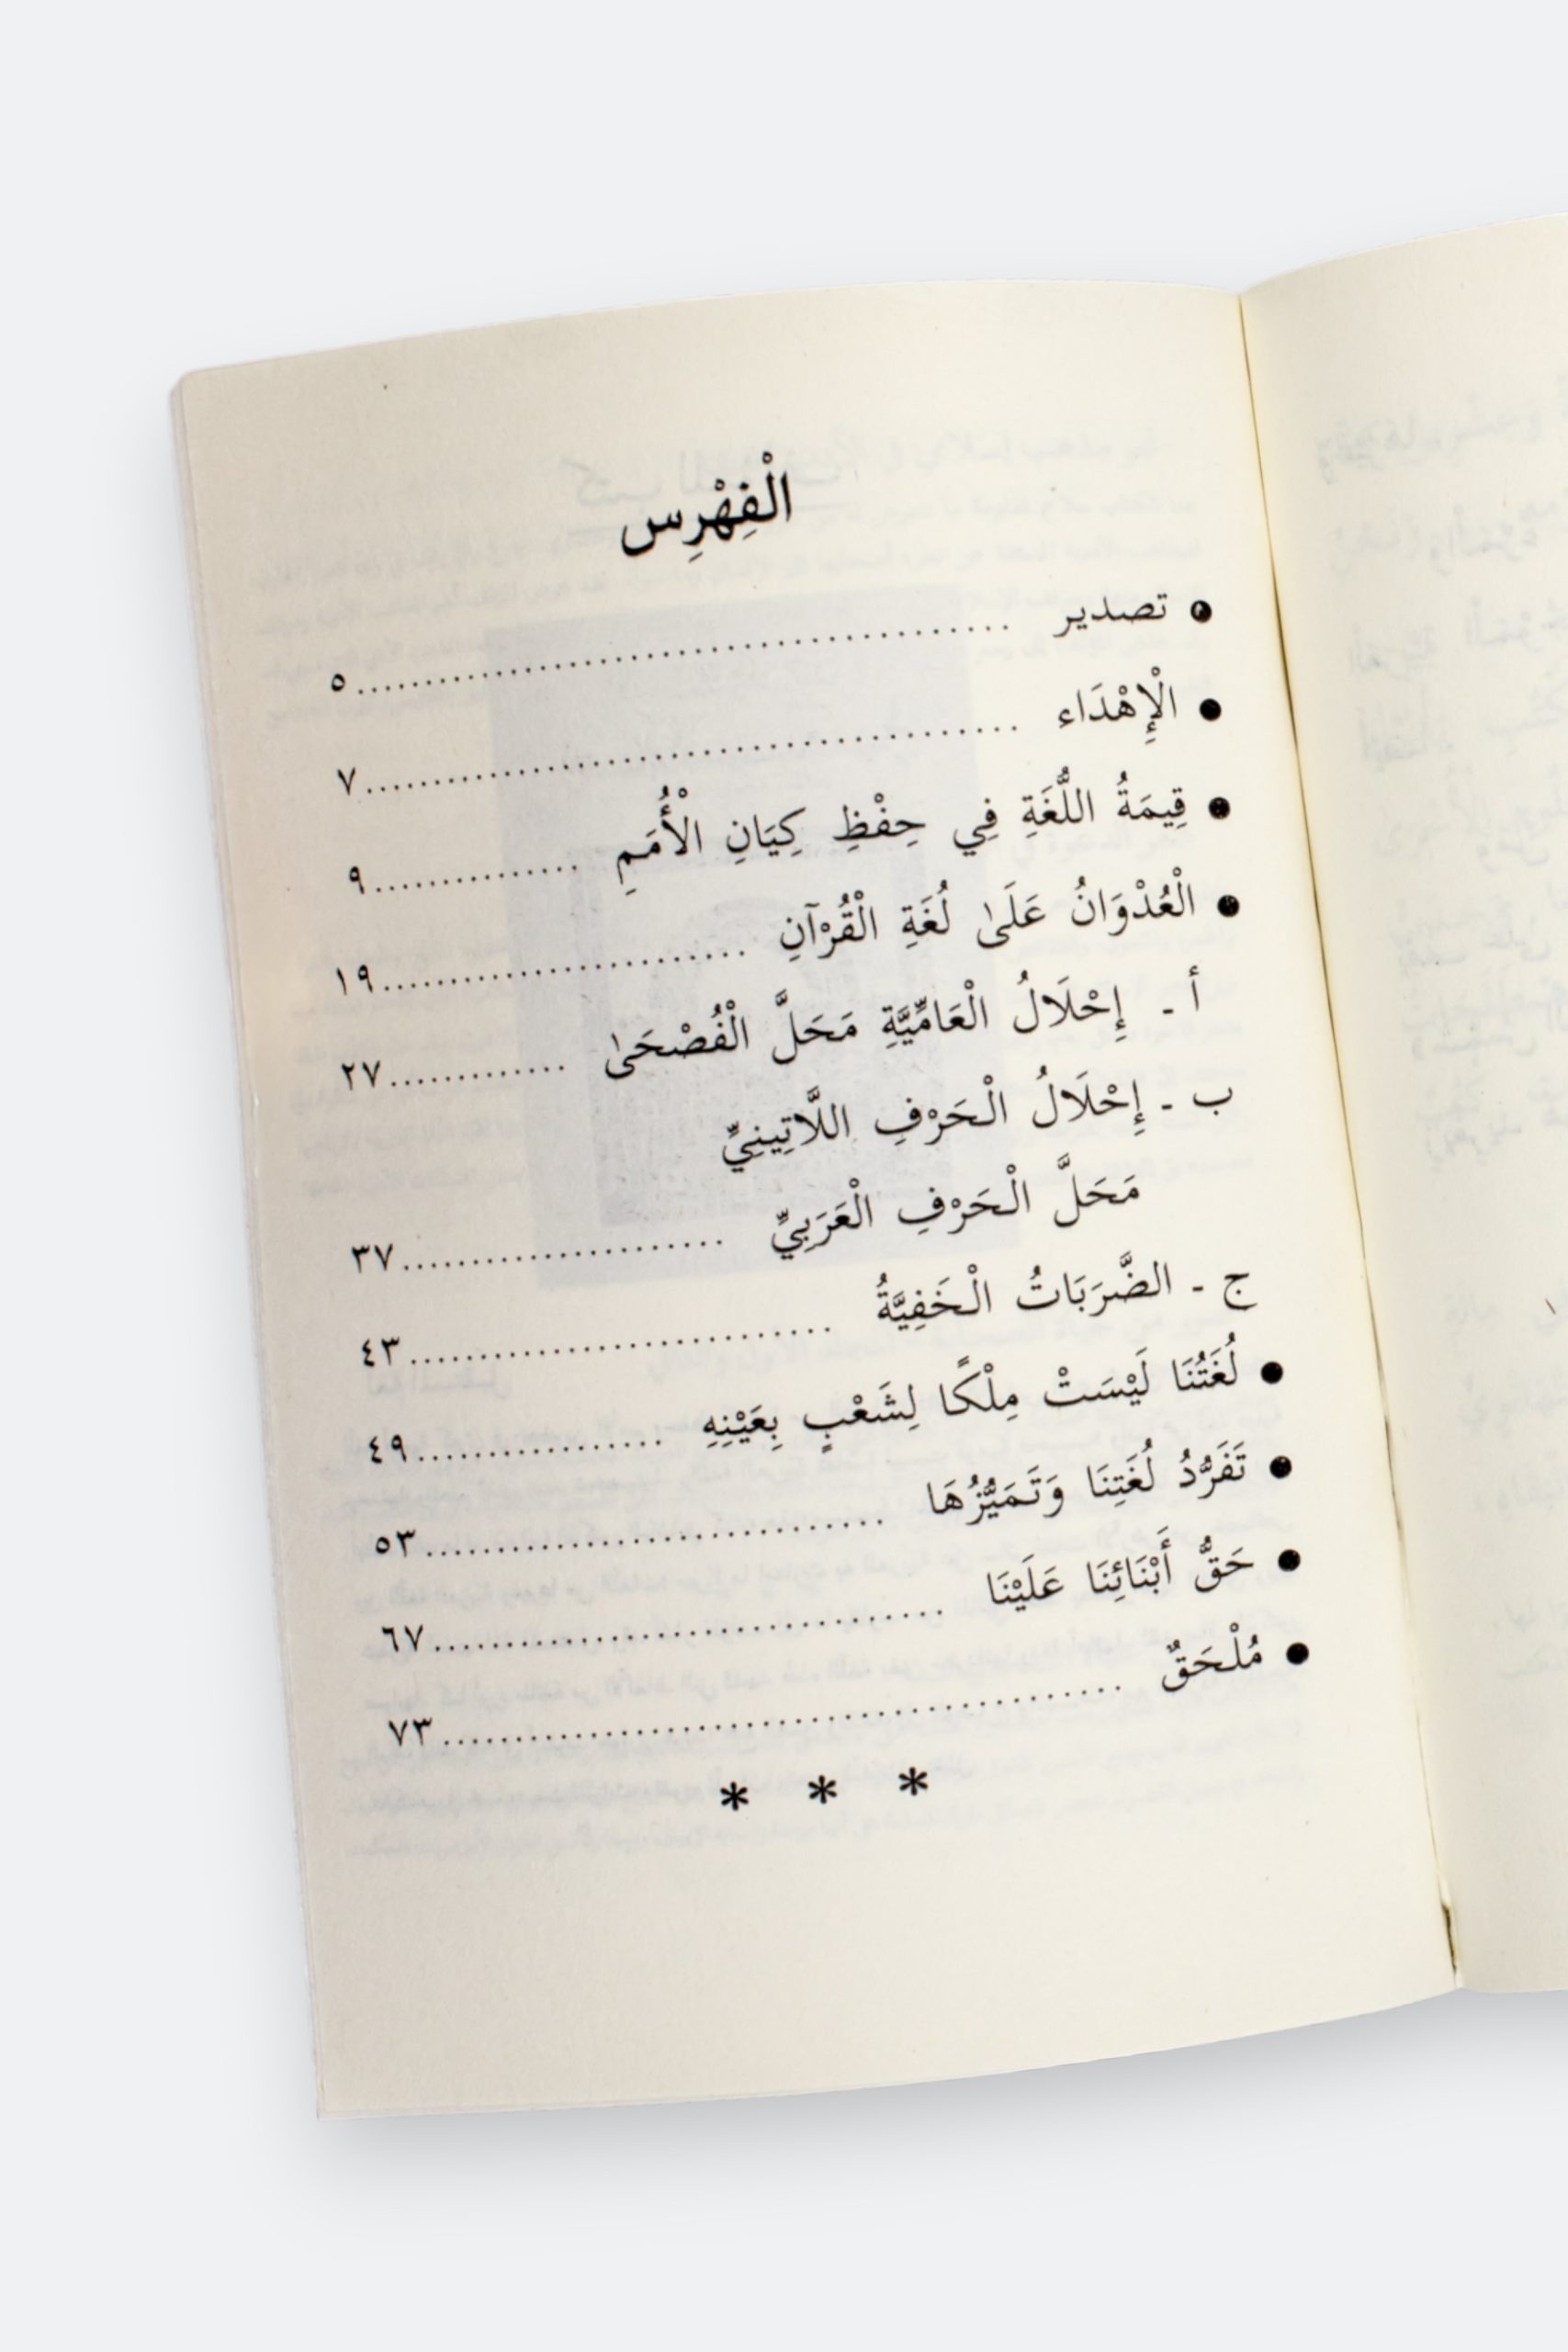 الْفِهْرِس
● تصدير ........................................ ٥
● الْإِهْدَاء ........................................ ٧
● قِيمَةُ اللُّغَةِ فِي حِفْظِ كِيَانِ الْأُمَمِ ................ ٩
● الْعُدْوَانُ عَلَىٰ لُغَةِ الْقُرْآنِ ........................... ١٩
أ ـ إِحْلَالُ الْعَامِّيَّةِ مَحَلَّ الْفُصْحَىٰ ............. ٢٧
ب ـ إِحْلَالُ الْحَرْفِ اللَّاتِينِيِّ
مَحَلَّ الْحَرْفِ الْعَرَبِيِّ ........................ ٣٧
ج ـ الضَّرَبَاتُ الْخَفِيَّةُ ............................... ٤٣
● لُغَتُنَا لَيْسَتْ مِلْكًا لِشَعْبٍ بِعَيْنِهِ .................. ٤٩
● تَفَرُّدُ لُغَتِنَا وَتَمَيُّزُهَا ................................. ٥٣
● حَقُّ أَبْنَائِنَا عَلَيْنَا .................................... ٦٧
● مُلْحَقٌ ................................................ ٧٣
* * *